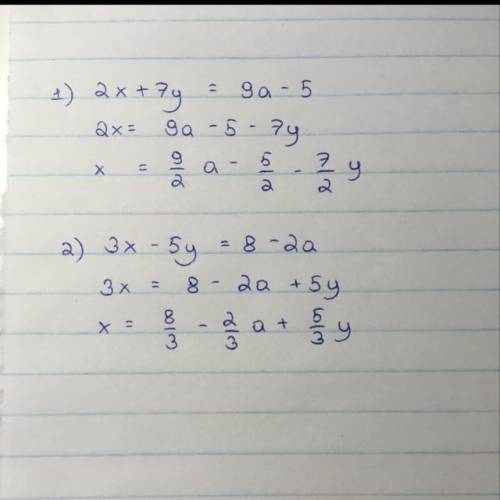 1) 2x + 7y = 9a - 5
2x = 9a - 5 - 7y
x = 9/2 a - 5/2 - 7/2 y
2) 3x - 5y = 8 - 2a
3x = 8 - 2a + 5y
x = 8/3 - 2/3 a + 5/3 y